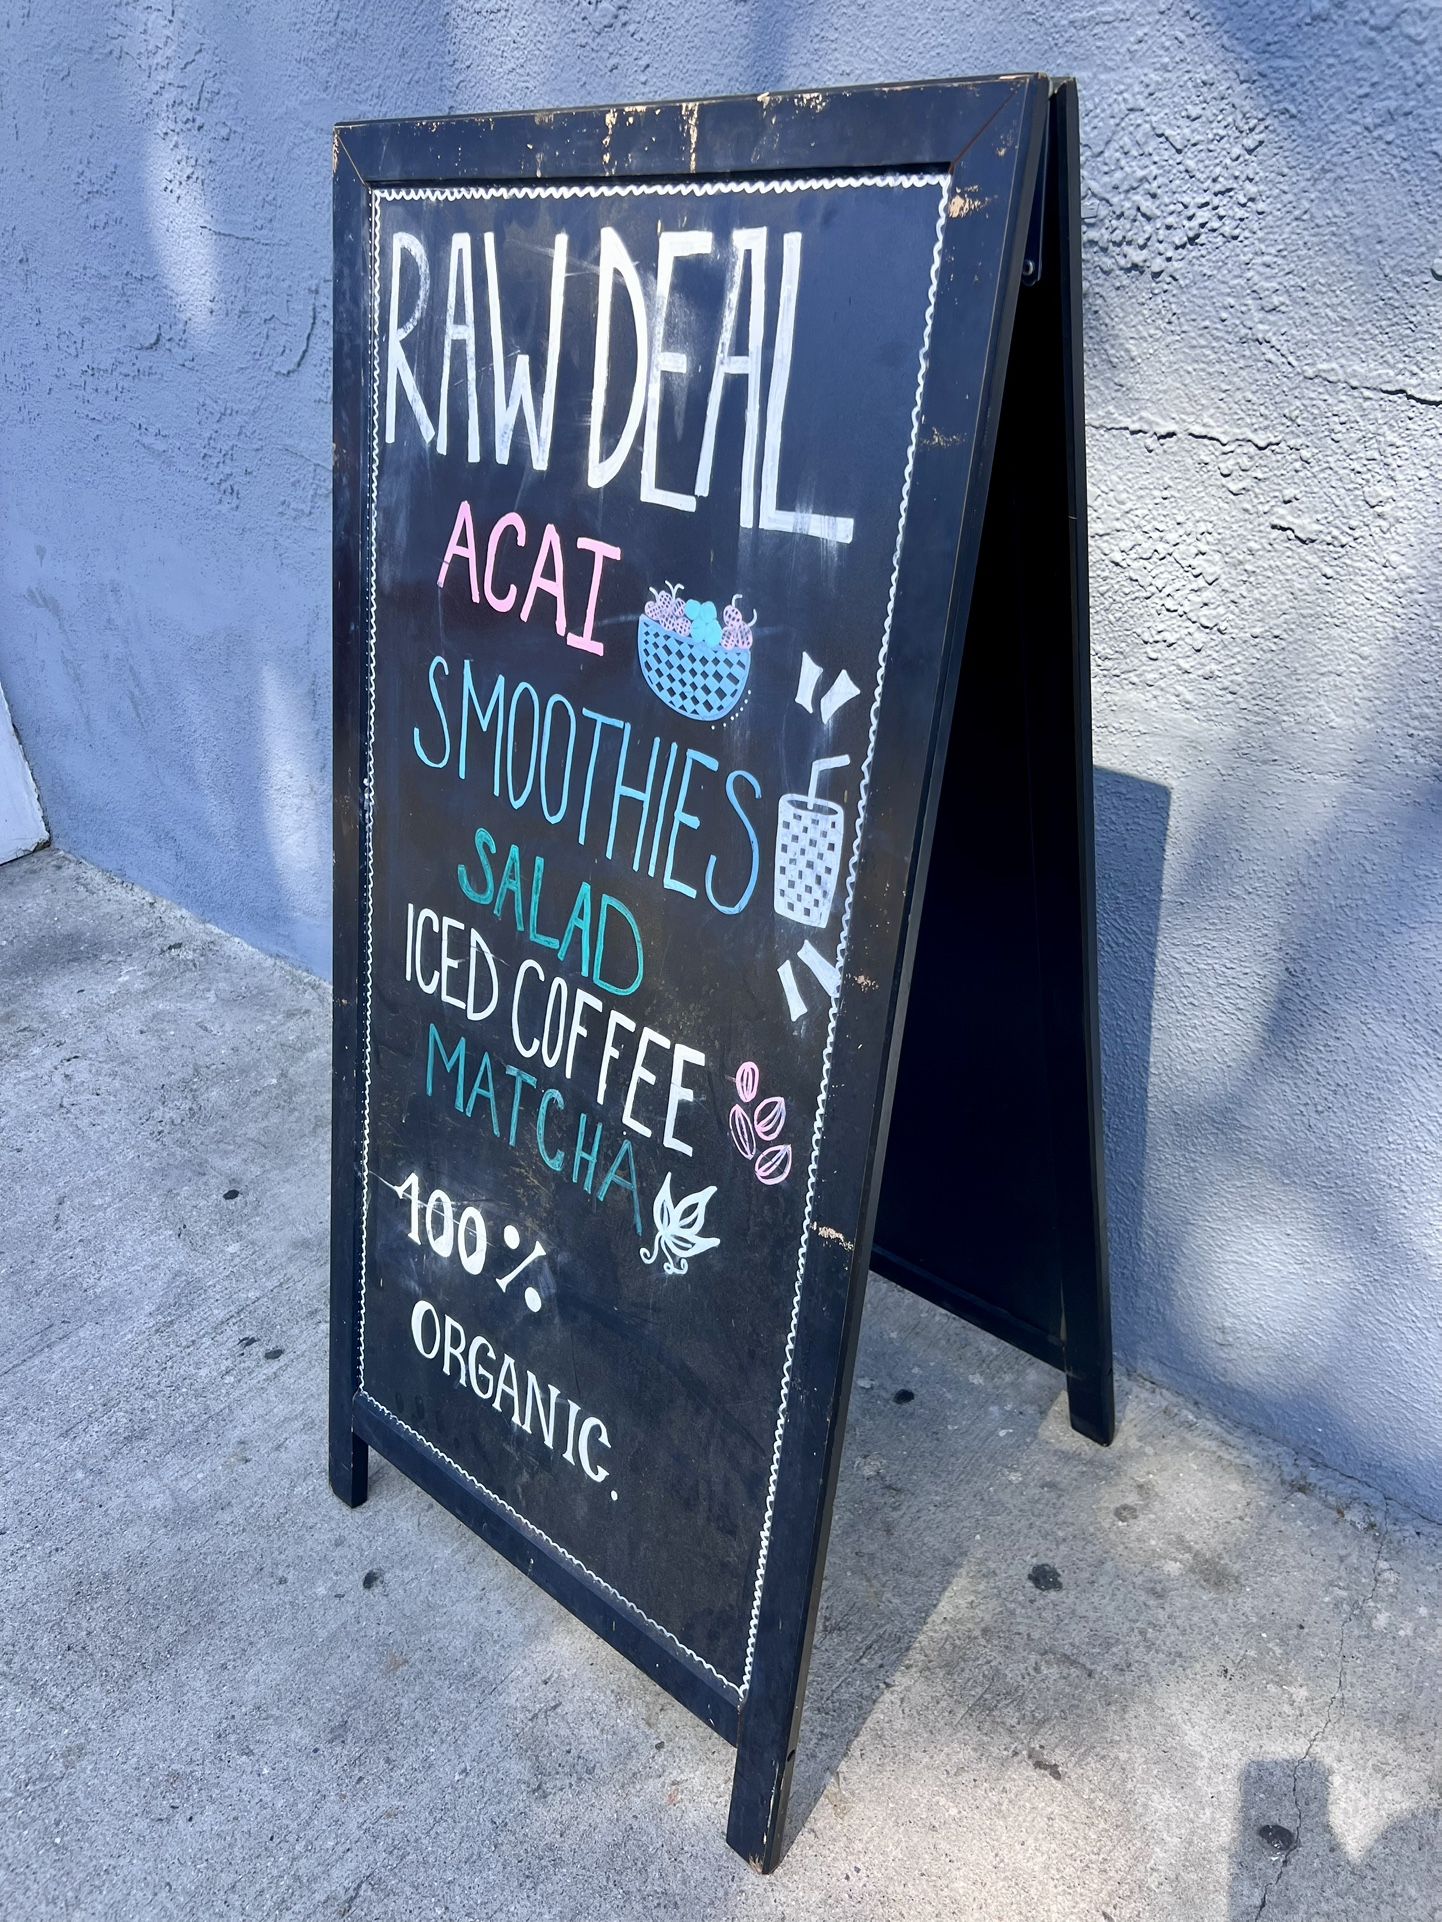 RAW DEAL
ACAI
SMOOTHIES
SALAD
ICED COFFEE
MATCHA
100%
ORGANIC.